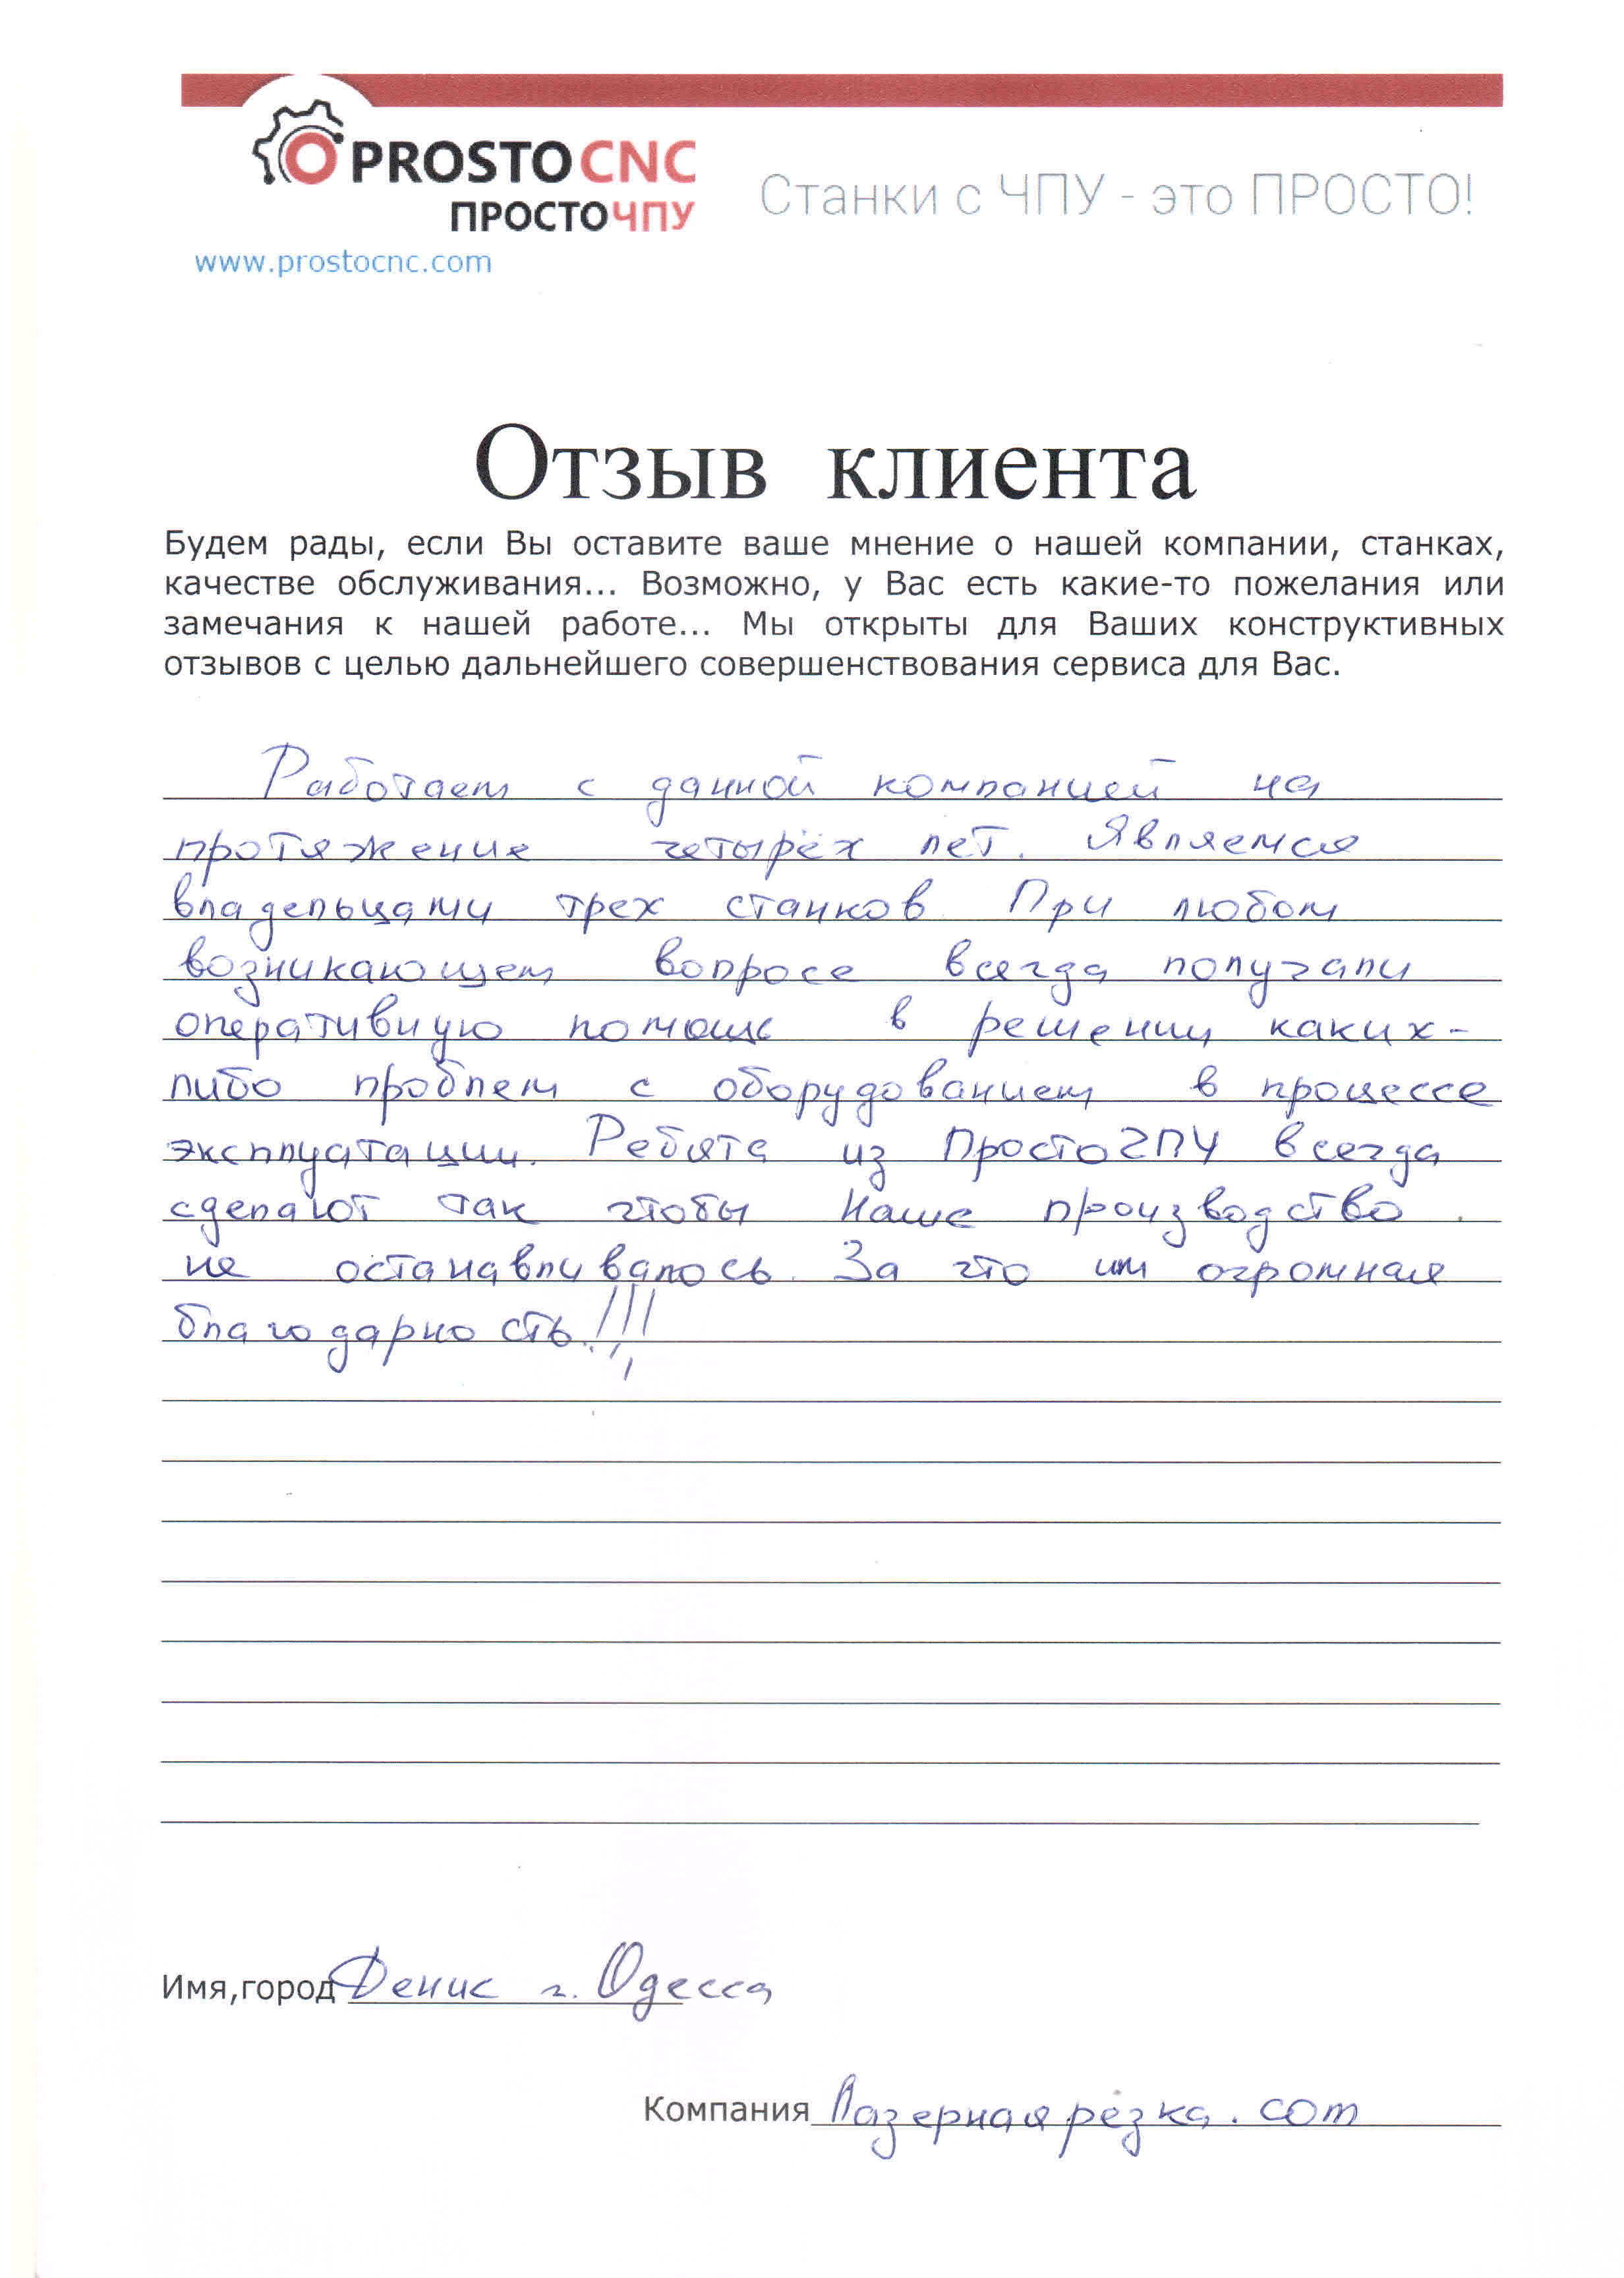 PROSTO CNC
ПРОСТОЧПУ
Станки с ЧПУ - это ПРОСТО!
www.prostocnc.com
Отзыв клиента
Будем рады, если Вы оставите ваше мнение о нашей компании, станках,
качестве обслуживания... Возможно, у Вас есть какие-то пожелания или
замечания к нашей работе... Мы открыты для Ваших конструктивных
отзывов с целью дальнейшего совершенствования сервиса для Вас.
Работаем с данной компанией на
протяжение четырёх лет. Являемся
владельцами трех станков При любом
возникающем вопросе всегда получали
оперативную помощь в решении каких-
либо проблем с оборудованием в процессе
эксплуатации. Ребята из ПростоЧПУ всегда
сделают так чтобы наше производство
не останавливалось. За что им огромная
благодарность!!!
Имя,город Денис г. Одесса
Компания Лазернаярезка.com